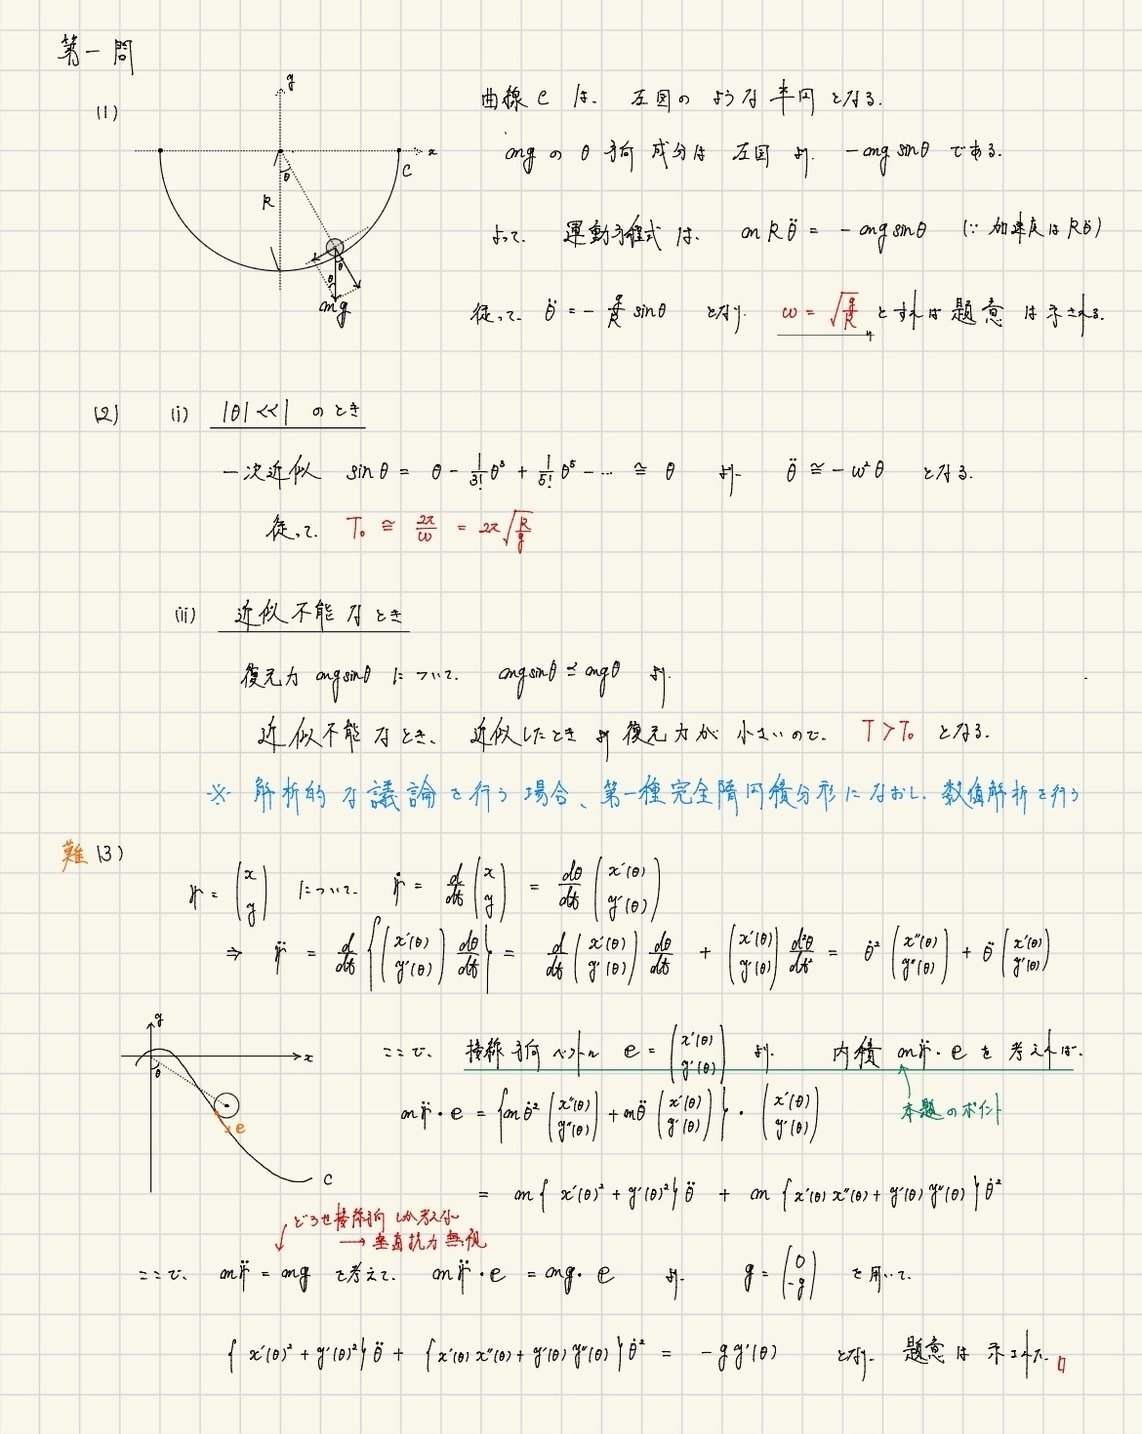 第一問
(1)
y
x
C
θ
R
θ
θ
mg
曲線 C は、左図のような半円となる.
mg の θ 方向成分は左図より、 -mg sinθ である.
よって、運動方程式は、 mRθ̈ = -mg sinθ (∵ 加速度は Rθ̈)
従って、 θ̈ = -g/R sinθ となり、 ω = √(g/R) とすれば題意は示される.
(2) (i) |θ| << 1 のとき
一次近似 sinθ = θ - 1/3! θ³ + 1/5! θ⁵ - … ≅ θ より、 θ̈ ≅ -ω²θ となる.
従って、 T₀ ≅ 2π/ω = 2π√(R/g)
(ii) 近似不能なとき
復元力 mg sinθ について、 mg sinθ ≦ mgθ より、
近似不能なとき、近似したときより復元力が小さいので、 T > T₀ となる.
※ 解析的な議論を行う場合、第一種完全隋円積分形になおし、数値解析を行う
難 (3)
r = (x y) について、 ṙ = d/dt (x y) = dθ/dt (x'(θ) y'(θ))
⇒ r̈ = d/dt {(x'(θ) y'(θ)) dθ/dt} = d/dt (x'(θ) y'(θ)) dθ/dt + (x'(θ) y'(θ)) d²θ/dt² = θ̇² (x''(θ) y''(θ)) + θ̈ (x'(θ) y'(θ))
y
x
θ
e
C
ここで、接線方向ベクトル e = (x'(θ) y'(θ)) より、内積 mr̈・e を考えれば、
本題のポイント
mr̈・e = {mθ̇² (x''(θ) y''(θ)) + mθ̈ (x'(θ) y'(θ))}・(x'(θ) y'(θ))
= m{x'(θ)² + y'(θ)²}θ̈ + m{x'(θ)x''(θ) + y'(θ)y''(θ)}θ̇²
どうせ接線方向しか考えない
→ 垂直抗力無視
ここで、 mr̈ = mg で考えて、 mr̈・e = mg・e より、 g = (0 -g) を用いて、
{x'(θ)² + y'(θ)²}θ̈ + {x'(θ)x''(θ) + y'(θ)y''(θ)}θ̇² = -gy'(θ) となり、題意は示された.□